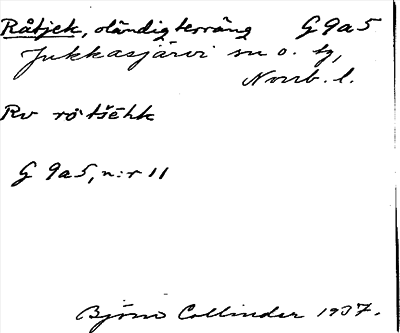 Råtjek, oländig terräng G 9 a 5
Jukkasjärvi sn o. tg,
Norrb. l.
Rv rötšēhk
G 9 a 5, n:r 11
Björn Collinder 1937.